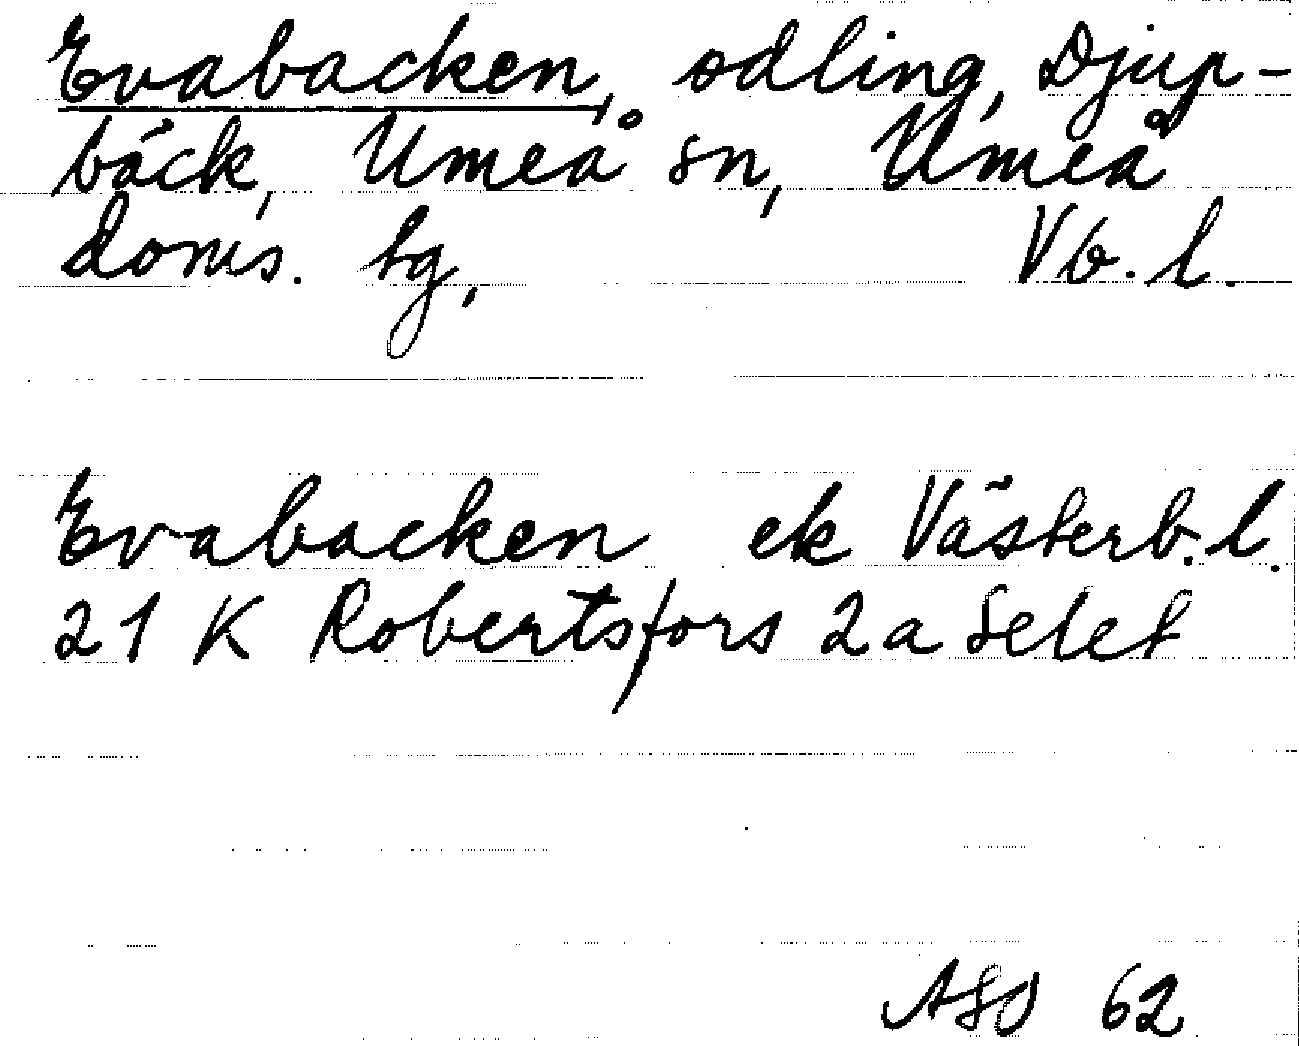 Evabacken, odling, Djup-
bäck, Umeå sn, Umeå
doms. tg, Vb. l.
Evabacken ek Västerb. l.
21 K Robertsfors 2a Selet
ASO 62